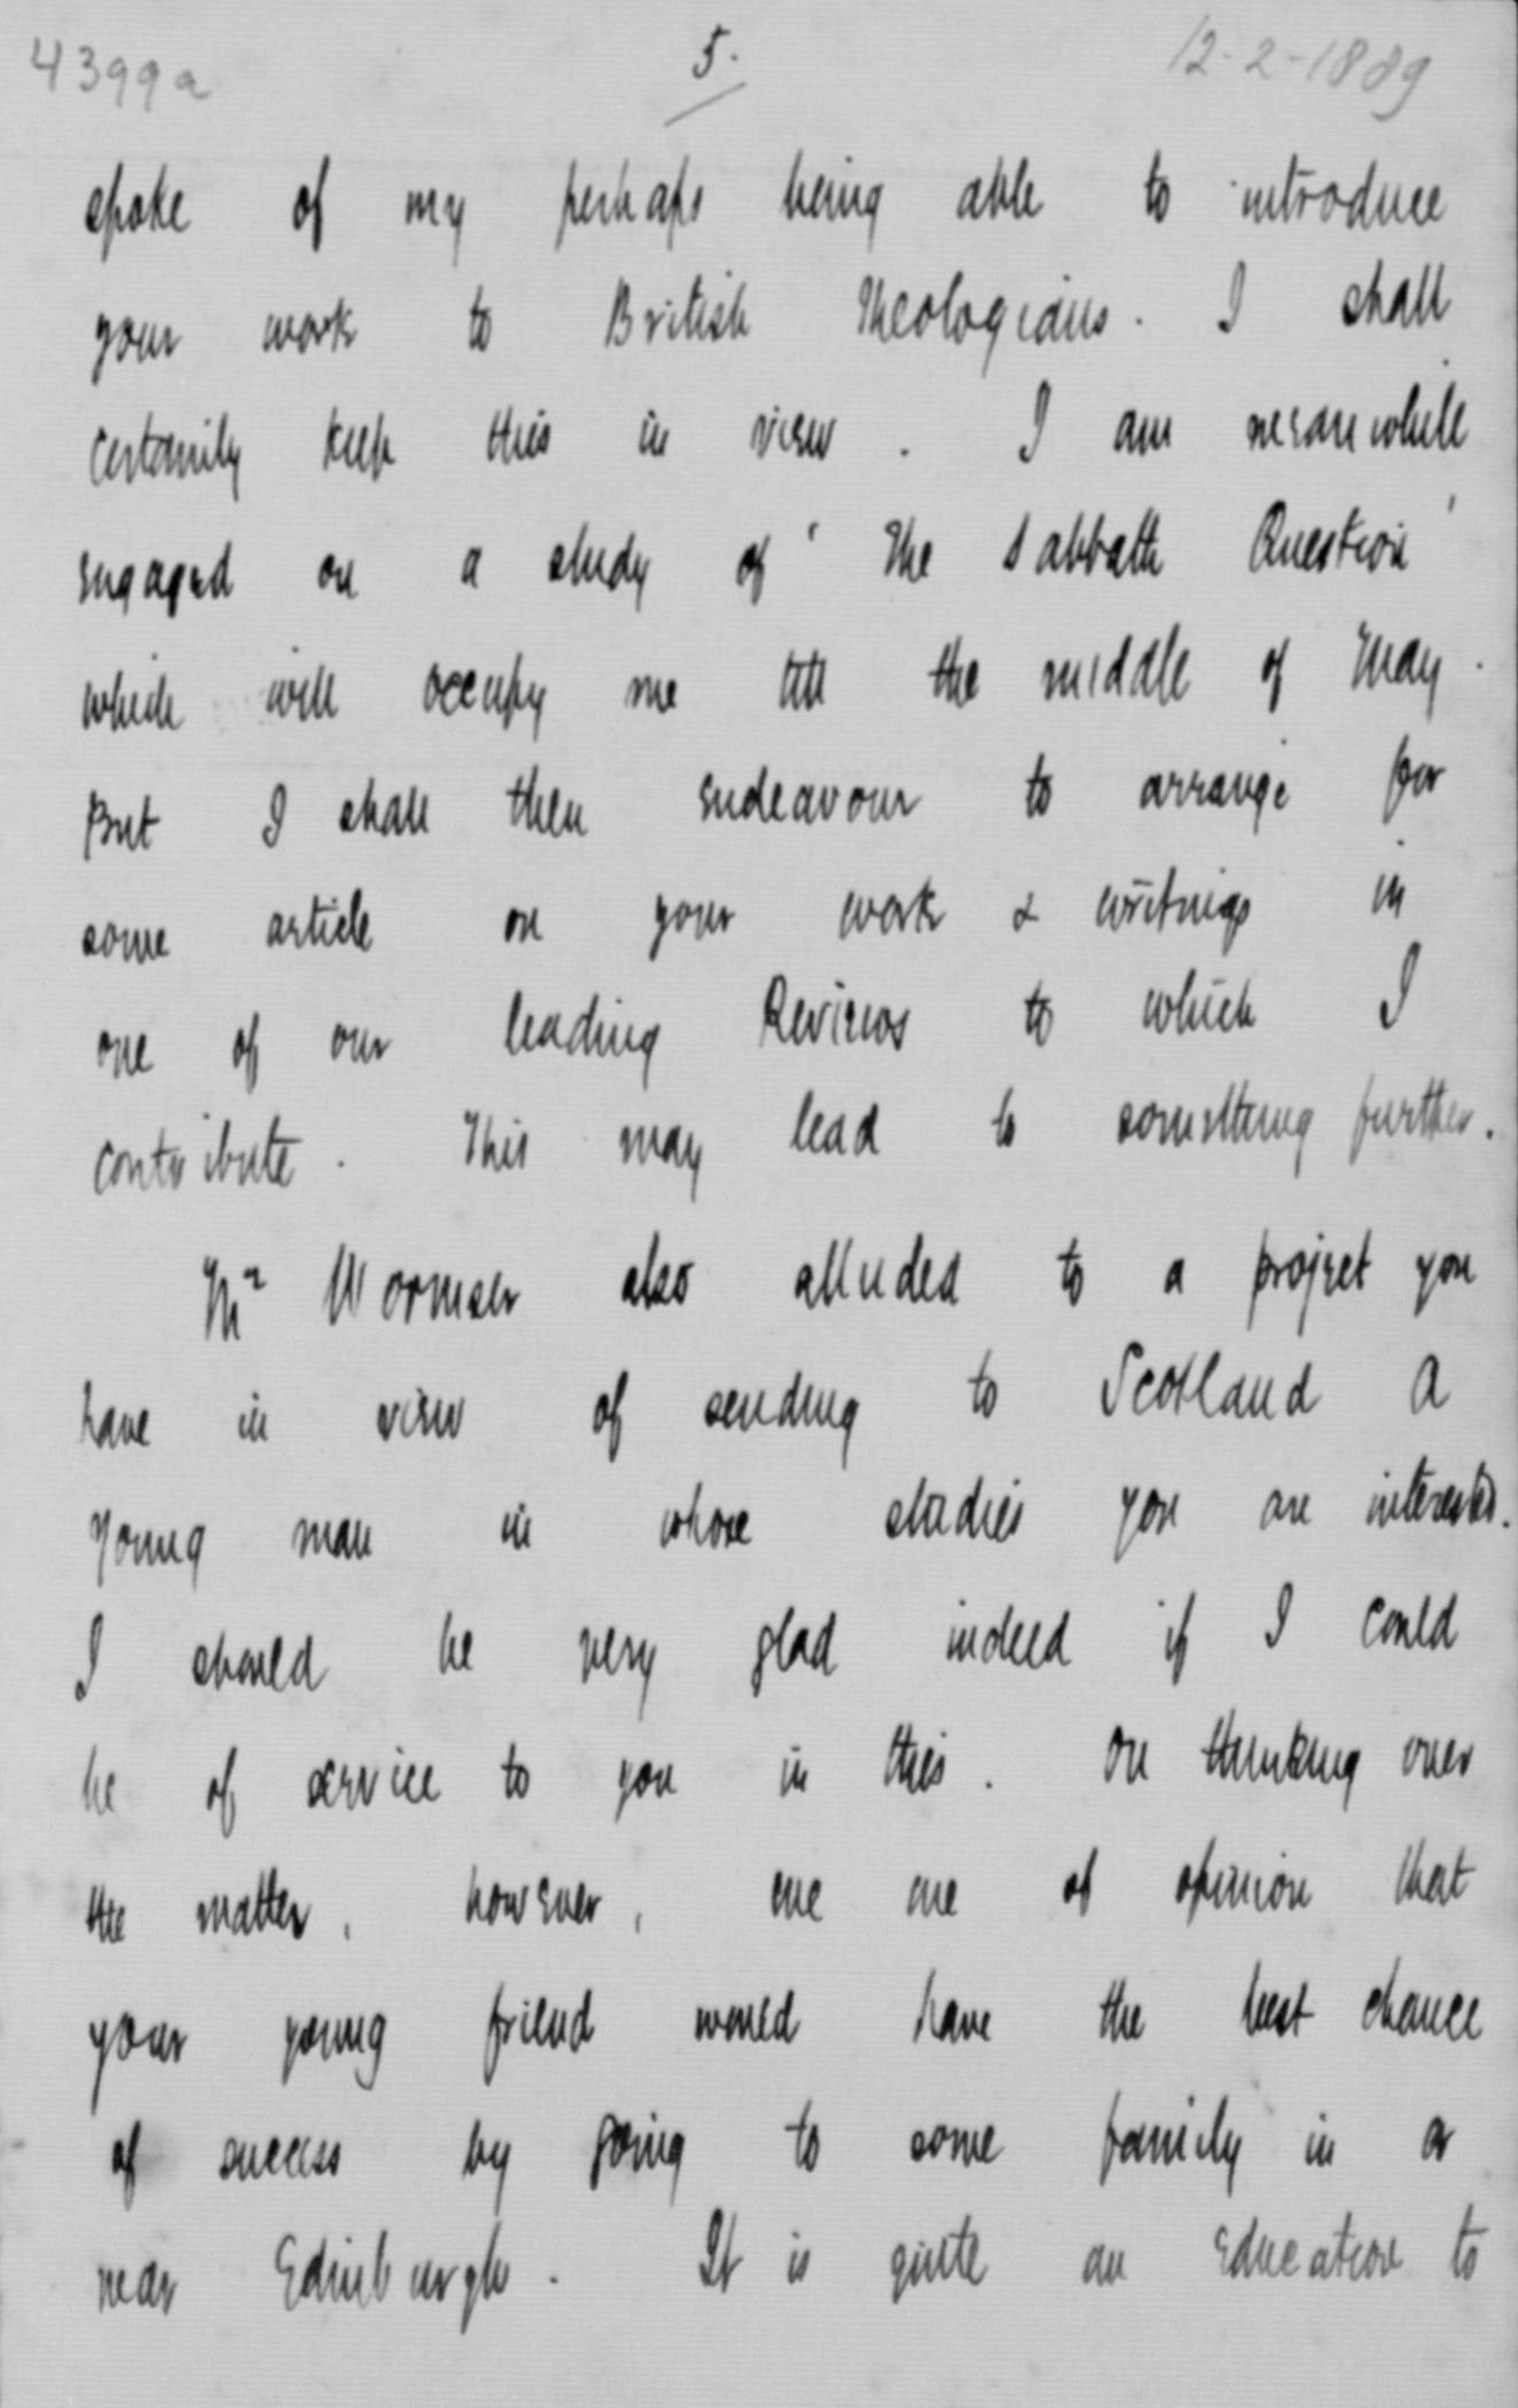 4399a 5. 12-2-1889
spoke of my perhaps being able to introduce
your work to British Theologians. I shall
certainly keep this in view. I am meanwhile
engaged on a study of 'The Sabbath Question'
which will occupy me till the middle of May.
But I shall then endeavour to arrange for
some article on your work & writings in
one of our leading Reviews to which I
contribute. This may lead to something further.
Mr Wormser also alluded to a project you
have in view of sending to Scotland a
young man in whose studies you are interested.
I should be very glad indeed if I could
be of service to you in this. On thinking over
the matter, however, we are of opinion that
your young friend would have the best chance
of success by going to some family in or
near Edinburgh. It is quite an education to